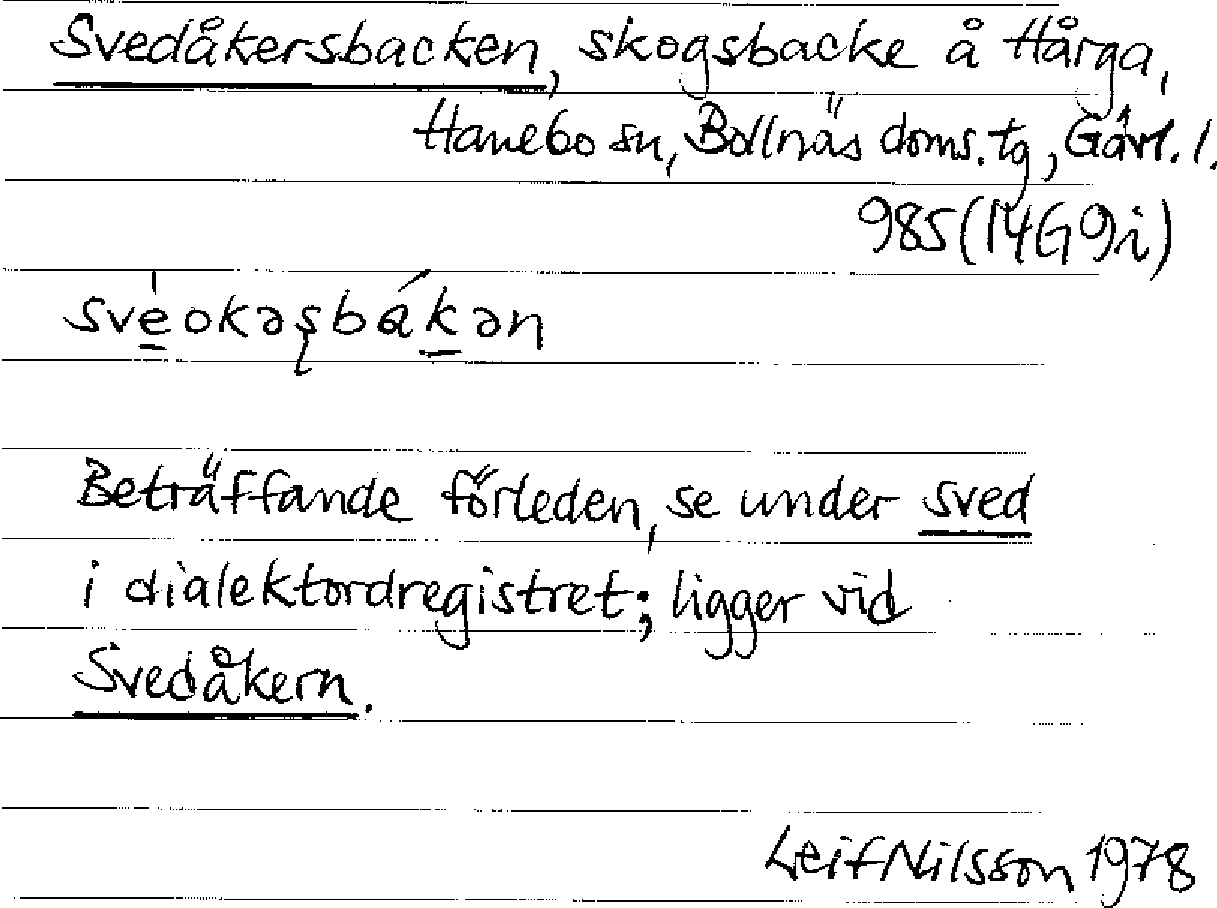 Svedåkersbacken, skogsbacke å Hårga,
Hanebo sn, Bollnäs doms. tg, Gävl. l.
985 (14G 9i)
sve̲̍okəʂbák̲ən
Beträffande förleden, se under sved
i dialektordregistret; ligger vid
Svedåkern.
Leif Nilsson 1978